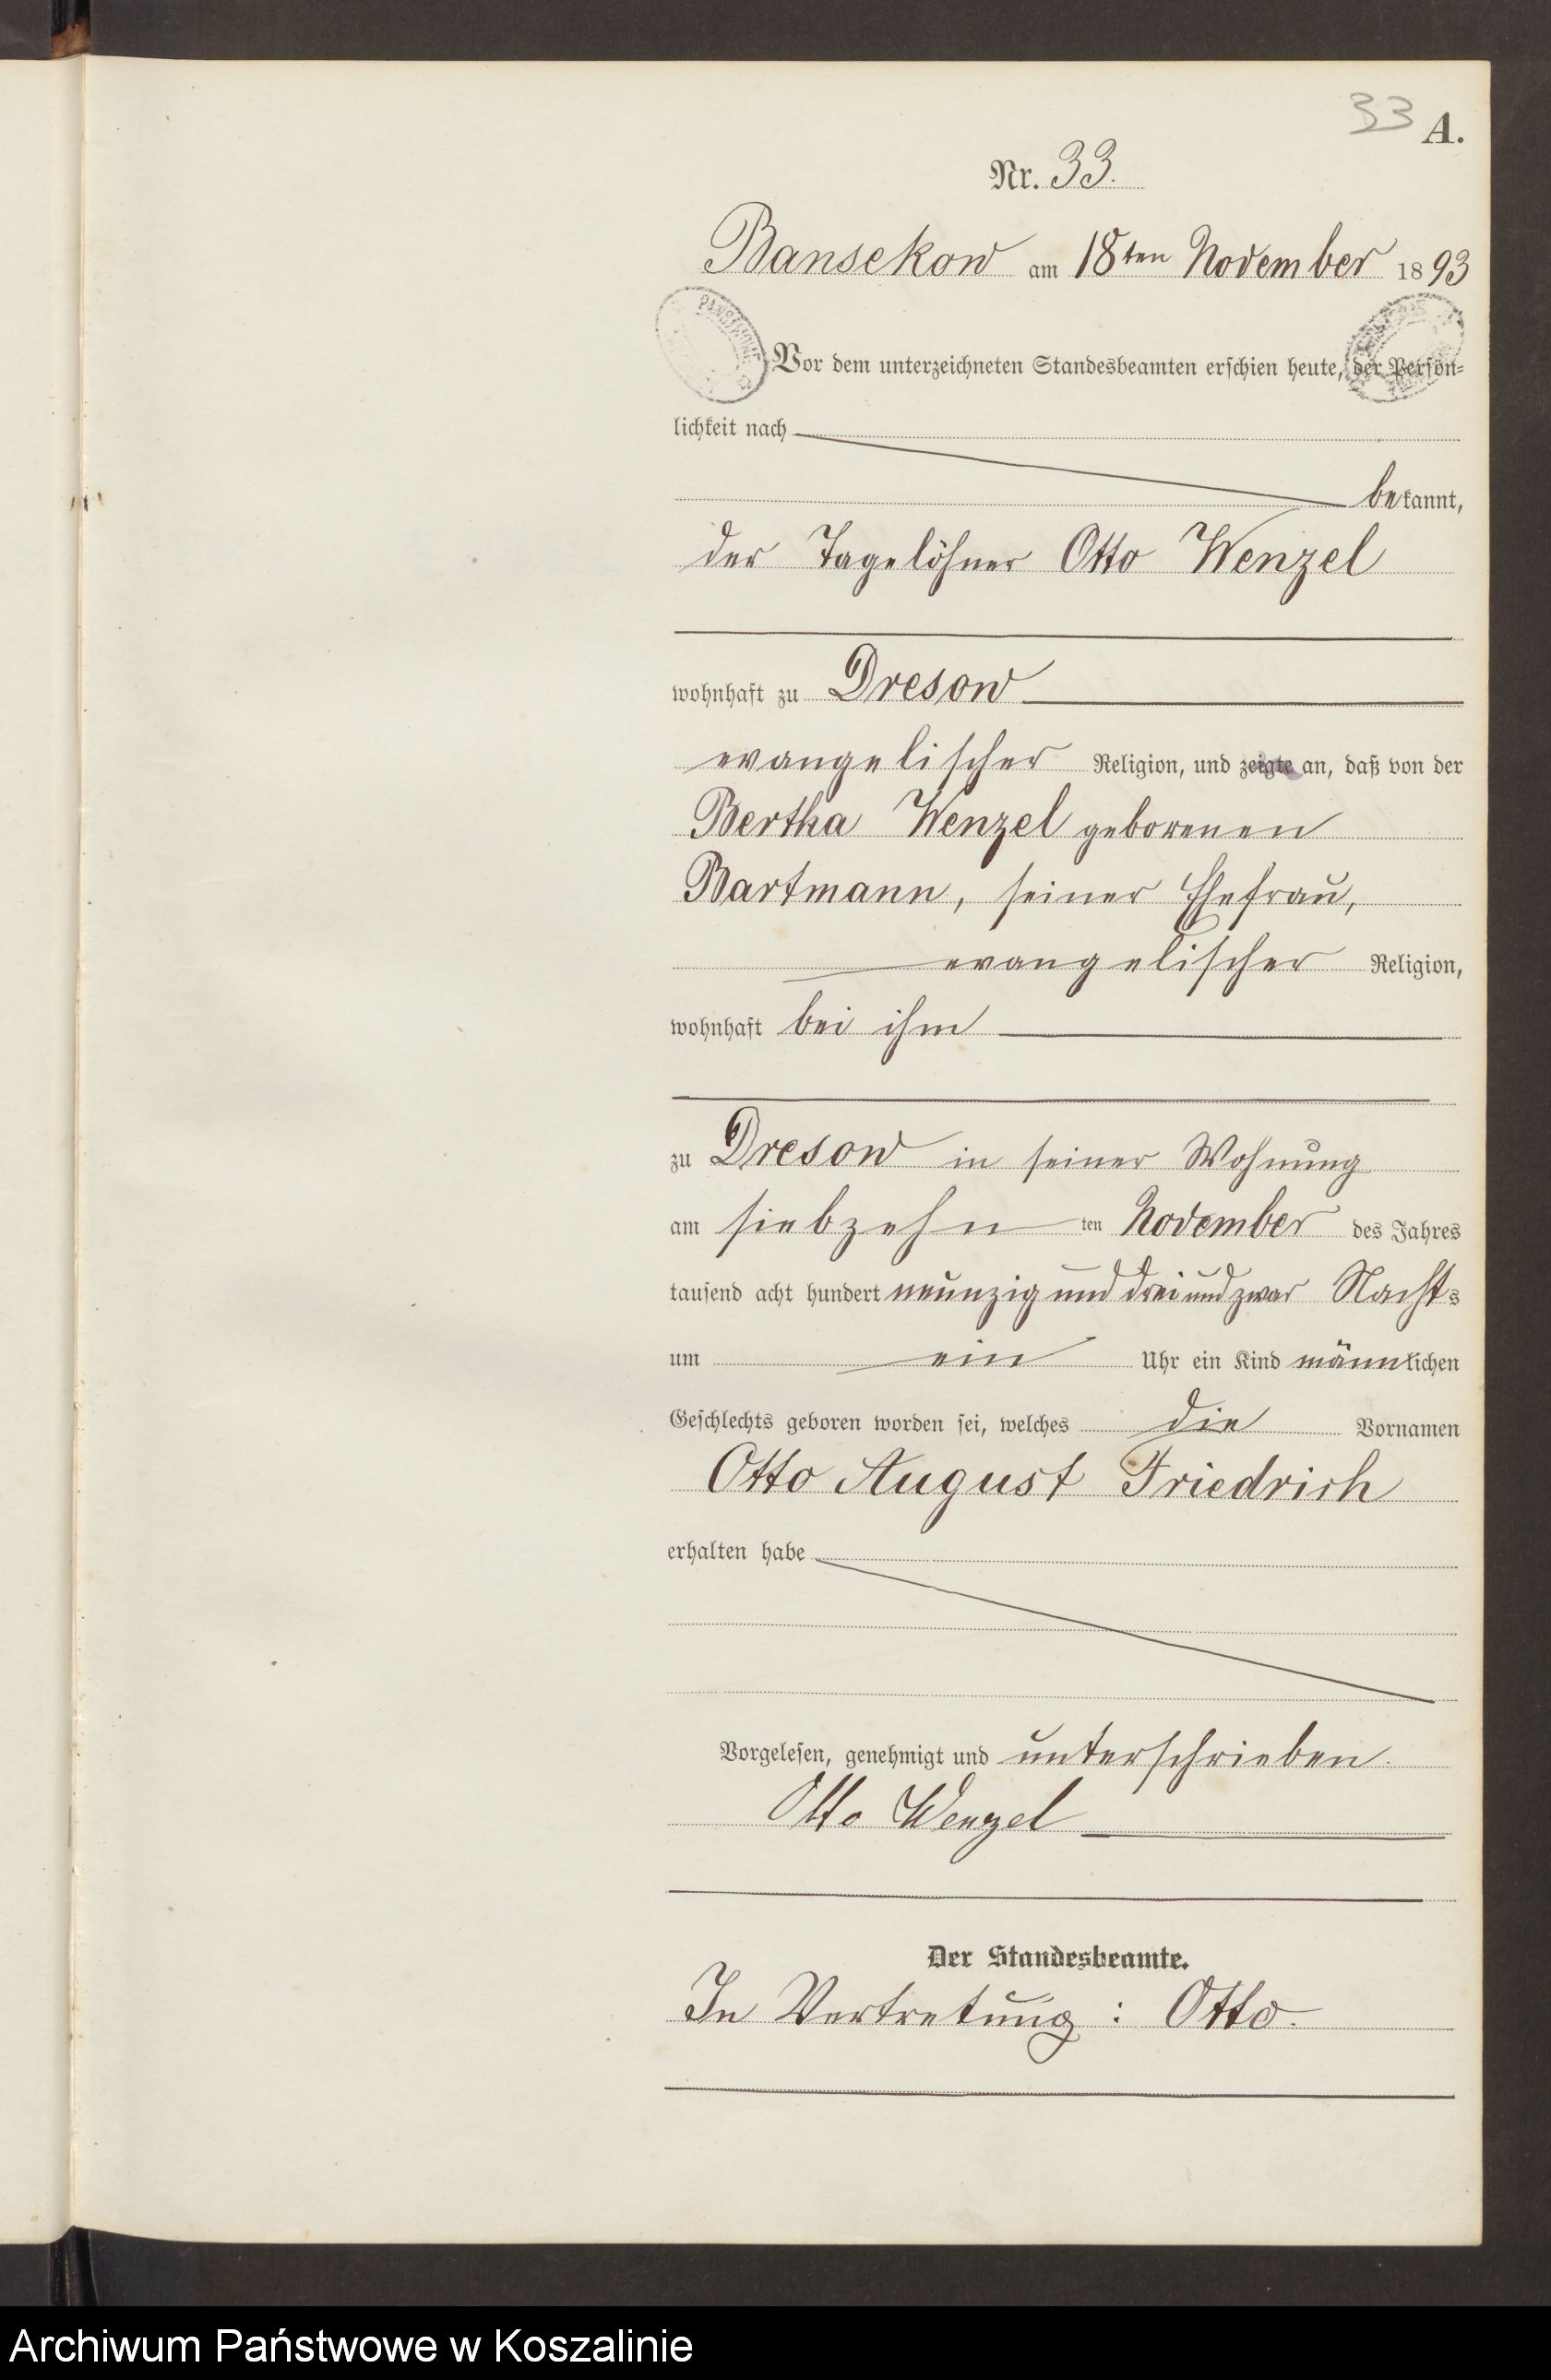 33 A.
Nr. 33.
Bansekow am 18ten November 1893
Vor dem unterzeichneten Standesbeamten erschien heute, der Persön-
lichkeit nach
bekannt,
der Tagelöhner Otto Wenzel
wohnhaft zu Dresow
evangelischer Religion, und zeigte an, daß von der
Bertha Wenzel geborenen
Bartmann, seiner Ehefrau,
evangelischer Religion,
wohnhaft bei ihm
zu Dresow in seiner Wohnung
am siebzehn ten November des Jahres
tausend acht hundert neunzig und drei und zwar Nachts
um ein Uhr ein Kind männlichen
Geschlechts geboren worden sei, welches die Vornamen
Otto August Friedrich
erhalten habe
Vorgelesen, genehmigt und unterschrieben.
Otto Wenzel
Der Standesbeamte.
In Vertretung: Otto.
Archiwum Państwowe w Koszalinie